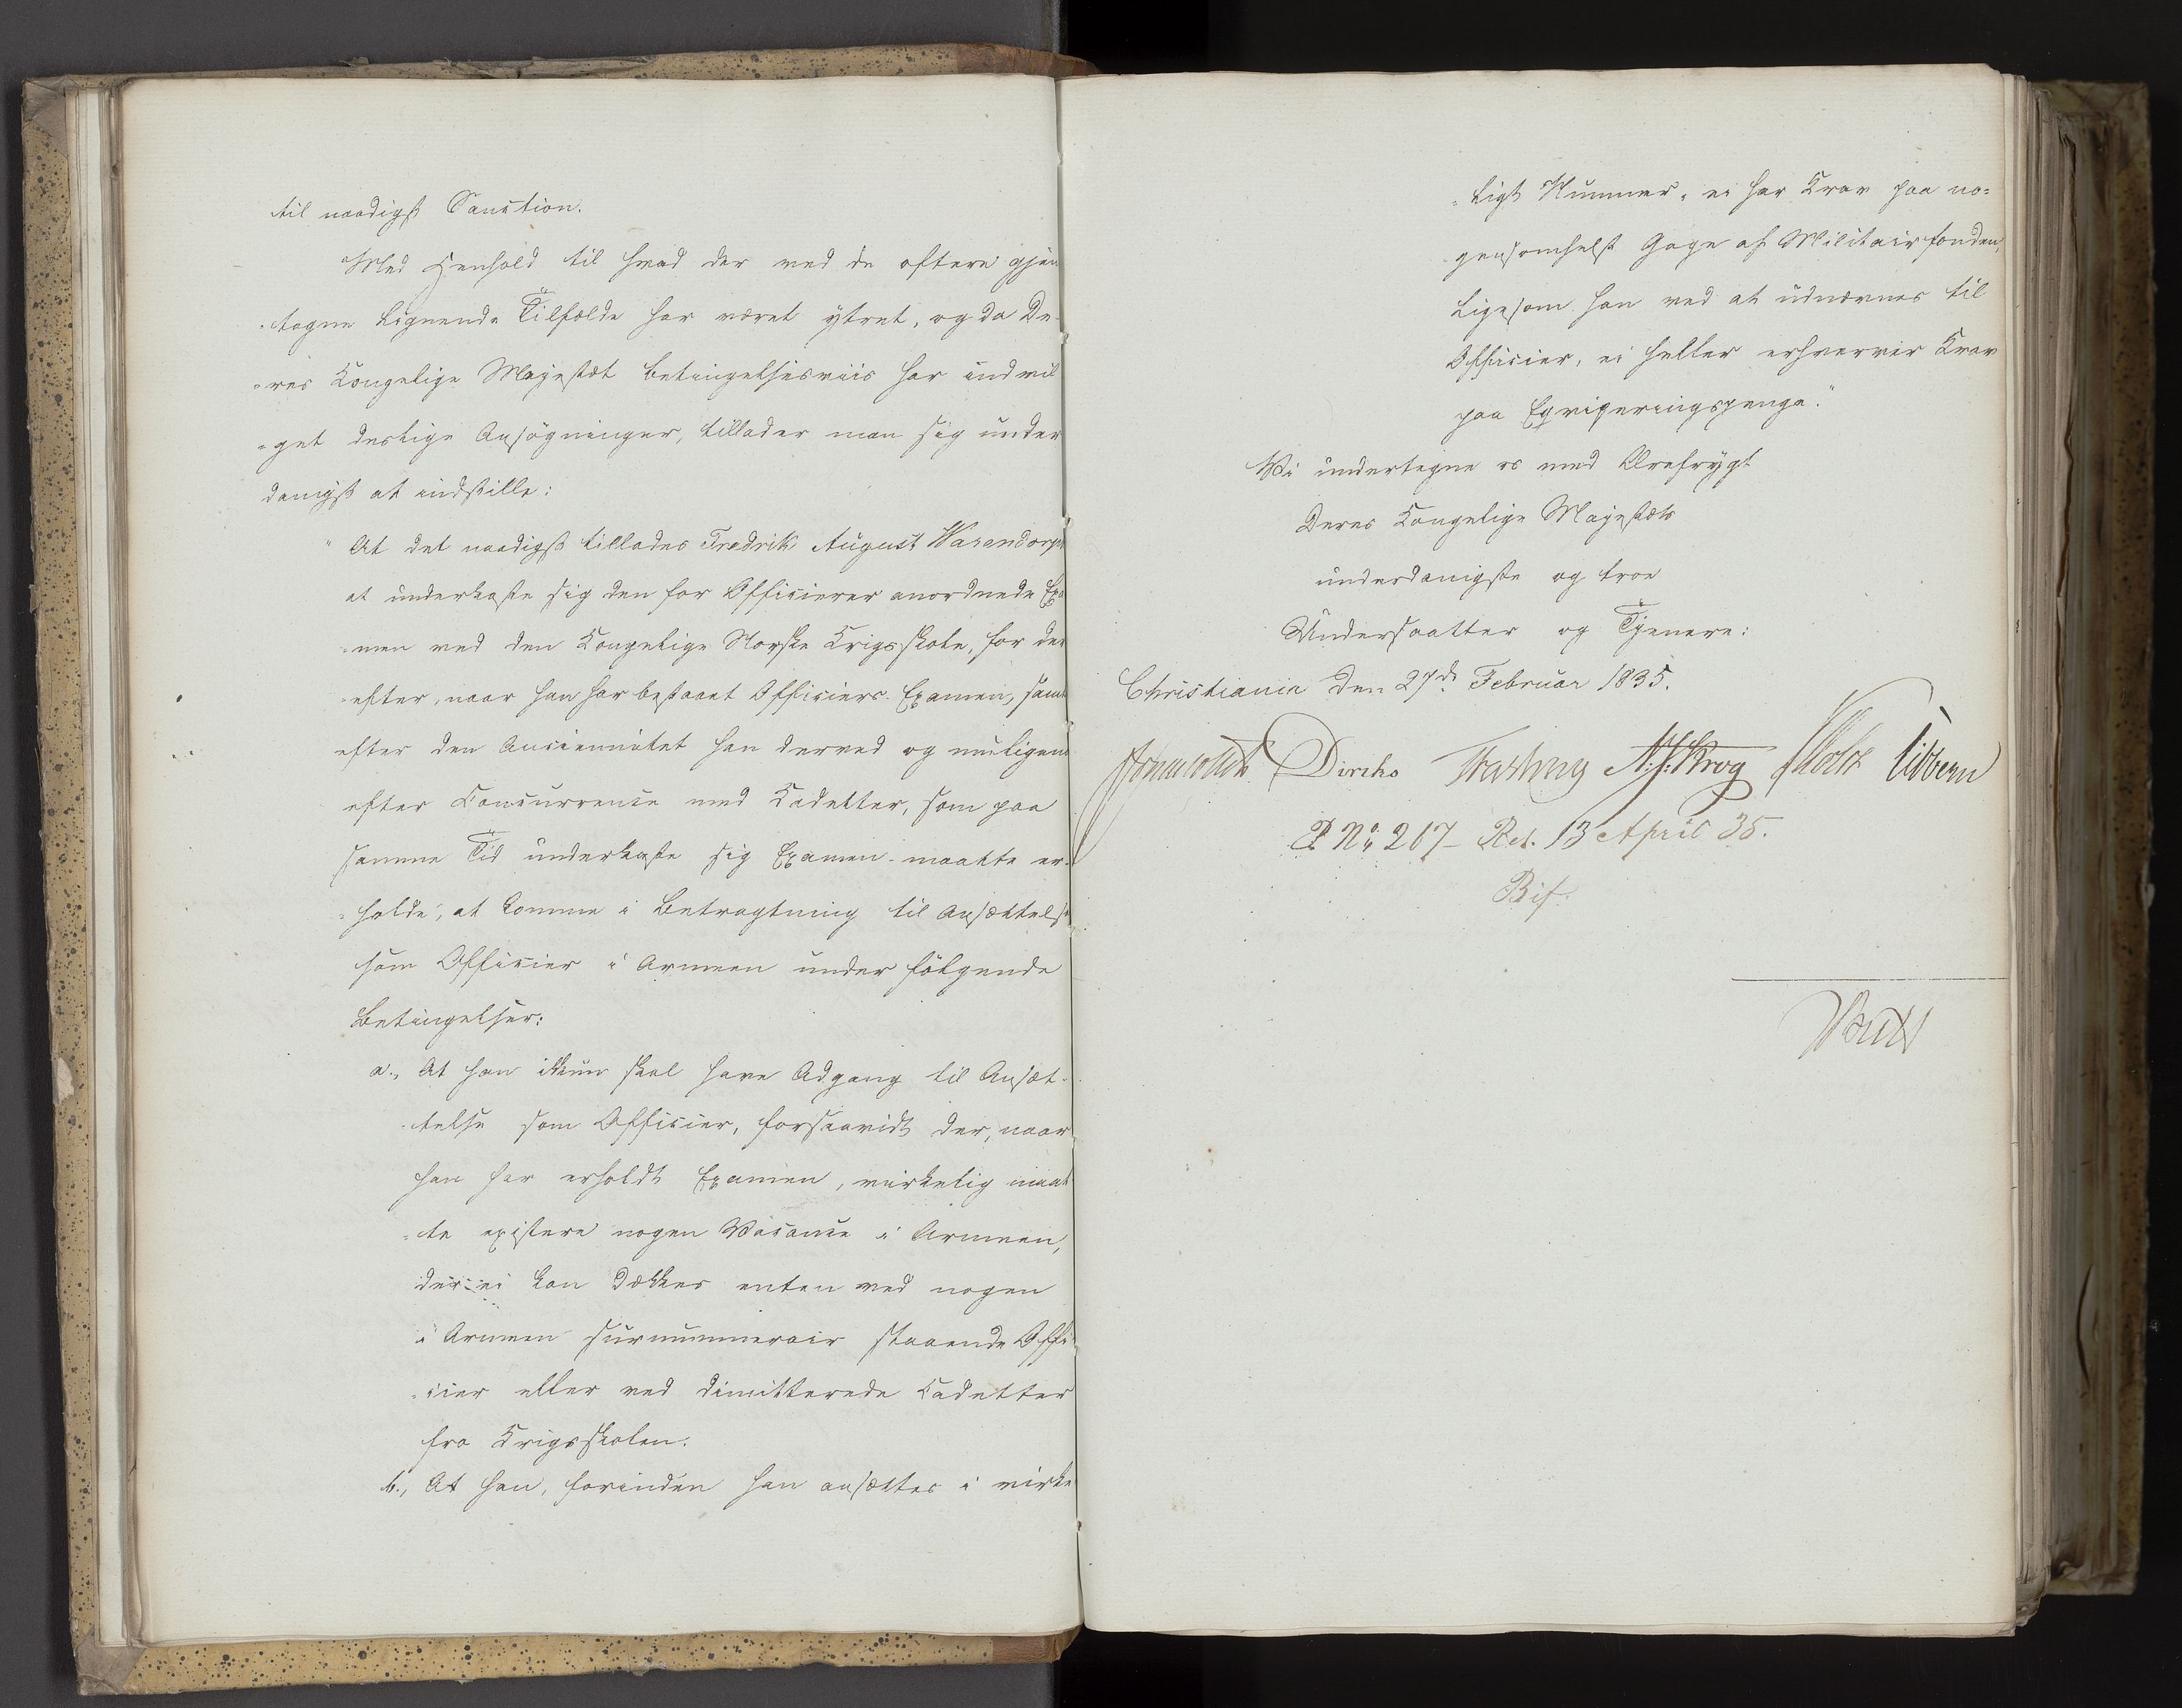 til naadigst Sanction.
Med Henhold til hvad der ved de oftere gjen
-tagne lignende Tilfælde har været ytret, og da De-
-res Kongelige Majestæt betingelsesviis har indvil
-get deslige Ansøgninger, tillader man sig under
danigst at indstille:
"At det naadigst tillades Fredrik August Warendorph
at underkaste sig den for Officierer anordnede Exa
-men ved den Kongelige Norske Krigsskole, for der
-efter, naar han har bestaaet Officiers-Examen, samt
efter den Anciennitet han derved og muligens
efter Concurrence med Cadetter, som paa
samme Tid underkaste sig Examen maatte er-
-holde, at komme i Betragtning til Ansættelse
som Officier i Armeen under følgende
Betingelser:
a., At han ikkun skal have Adgang til Ansæt-
-telse som Officier, forsaavidt der, naar
han har erholdt Examen, virkelig maat
-te existere nogen Vacance i Armeen,
der ei kan dækkes enten ved nogen
i Armeen surnummerair staaende Offi
-cier eller ved dimitterede Cadetter
fra Krigsskolen.
b., At han, forinden han ansættes i virke
-ligt Nummer, ei har Krav paa no-
gensomhelst Gage af Militairfonden,
ligesom han ved at udnævnes til
Officier, ei heller erhverver Krav
paa Eqviperingspenge."
Vi undertegne os med Ærefrygt
Deres Kongelige Majestæts
underdanigste og troe
Undersaatter og Tjenere:
Christiania den 27de Februar 1835.
Diriks N. J. Krog Holst Vibern
P No 267 - Res. 13 April 35.
Bif.